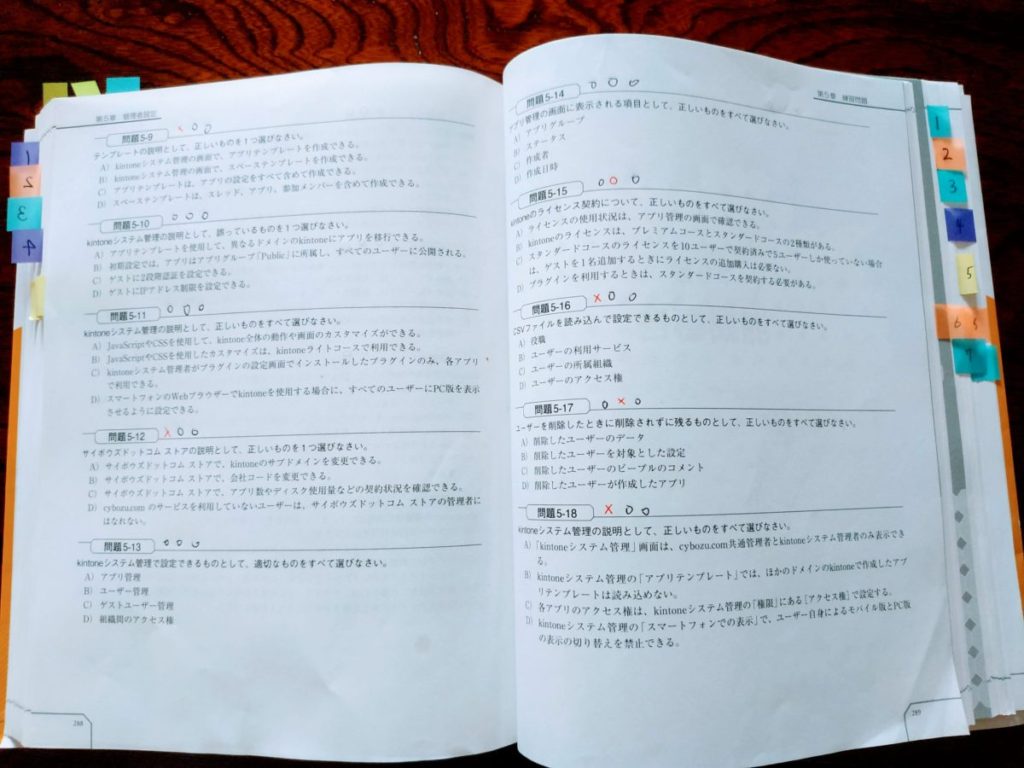 第5章 管理者設定
問題5-9 × ○ ○
テンプレートの説明として、正しいものを1つ選びなさい。
A) kintoneシステム管理の画面で、アプリテンプレートを作成できる。
B) kintoneシステム管理の画面で、スペーステンプレートを作成できる。
C) アプリテンプレートは、アプリの設定をすべて含めて作成できる。
D) スペーステンプレートは、スレッド、アプリ、参加メンバーを含めて作成できる。
問題5-10 ○ ○ ○
kintoneシステム管理の説明として、誤っているものを1つ選びなさい。
A) アプリテンプレートを使用して、異なるドメインのkintoneにアプリを移行できる。
B) 初期設定では、アプリはアプリグループ「Public」に所属し、すべてのユーザーに公開される。
C) ゲストに2段階認証を設定できる。
D) ゲストにIPアドレス制限を設定できる。
問題5-11 ○ ○ ○
kintoneシステム管理の説明として、正しいものをすべて選びなさい。
A) JavaScriptやCSSを使用して、kintone全体の動作や画面のカスタマイズができる。
B) JavaScriptやCSSを使用したカスタマイズは、kintoneライトコースで利用できる。
C) kintoneシステム管理者がプラグインの設定画面でインストールしたプラグインのみ、各アプリ
で利用できる。
D) スマートフォンのWebブラウザーでkintoneを使用する場合に、すべてのユーザーにPC版を表示
させるように設定できる。
問題5-12 × ○ ○
サイボウズドットコム ストアの説明として、正しいものを1つ選びなさい。
A) サイボウズドットコム ストアで、kintoneのサブドメインを変更できる。
B) サイボウズドットコム ストアで、会社コードを変更できる。
C) サイボウズドットコム ストアで、アプリ数やディスク使用量などの契約状況を確認できる。
D) cybozu.com のサービスを利用していないユーザーは、サイボウズドットコム ストアの管理者に
はなれない。
問題5-13 ○ ○ ○
kintoneシステム管理で設定できるものとして、適切なものをすべて選びなさい。
A) アプリ管理
B) ユーザー管理
C) ゲストユーザー管理
D) 組織間のアクセス権
288
1
2
3
4
第5章 練習問題
問題5-14 ○ ○ ○
アプリ管理の画面に表示される項目として、正しいものをすべて選びなさい。
A) アプリグループ
B) ステータス
C) 作成者
D) 作成日時
問題5-15 ○ ○ ○
kintoneのライセンス契約について、正しいものをすべて選びなさい。
A) ライセンスの使用状況は、アプリ管理の画面で確認できる。
B) kintoneのライセンスは、プレミアムコースとスタンダードコースの2種類がある。
C) スタンダードコースのライセンスを10ユーザーで契約済みで5ユーザーしか使っていない場合
は、ゲストを1名追加するときにライセンスの追加購入は必要ない。
D) プラグインを利用するときは、スタンダードコースを契約する必要がある。
問題5-16 × ○ ○
CSVファイルを読み込んで設定できるものとして、正しいものをすべて選びなさい。
A) 役職
B) ユーザーの利用サービス
C) ユーザーの所属組織
D) ユーザーのアクセス権
問題5-17 ○ × ○
ユーザーを削除したときに削除されずに残るものとして、正しいものをすべて選びなさい。
A) 削除したユーザーのデータ
B) 削除したユーザーを対象とした設定
C) 削除したユーザーのピープルのコメント
D) 削除したユーザーが作成したアプリ
問題5-18 × ○ ○
kintoneシステム管理の説明として、正しいものをすべて選びなさい。
A) 「kintoneシステム管理」画面は、cybozu.com共通管理者とkintoneシステム管理者のみ表示でき
る。
B) kintoneシステム管理の「アプリテンプレート」では、ほかのドメインのkintoneで作成したアプ
リテンプレートは読み込めない。
C) 各アプリのアクセス権は、kintoneシステム管理の「権限」にある[アクセス権]で設定する。
D) kintoneシステム管理の「スマートフォンでの表示」で、ユーザー自身によるモバイル版とPC版
の表示の切り替えを禁止できる。
289
1
2
3
4
5
6 5
7